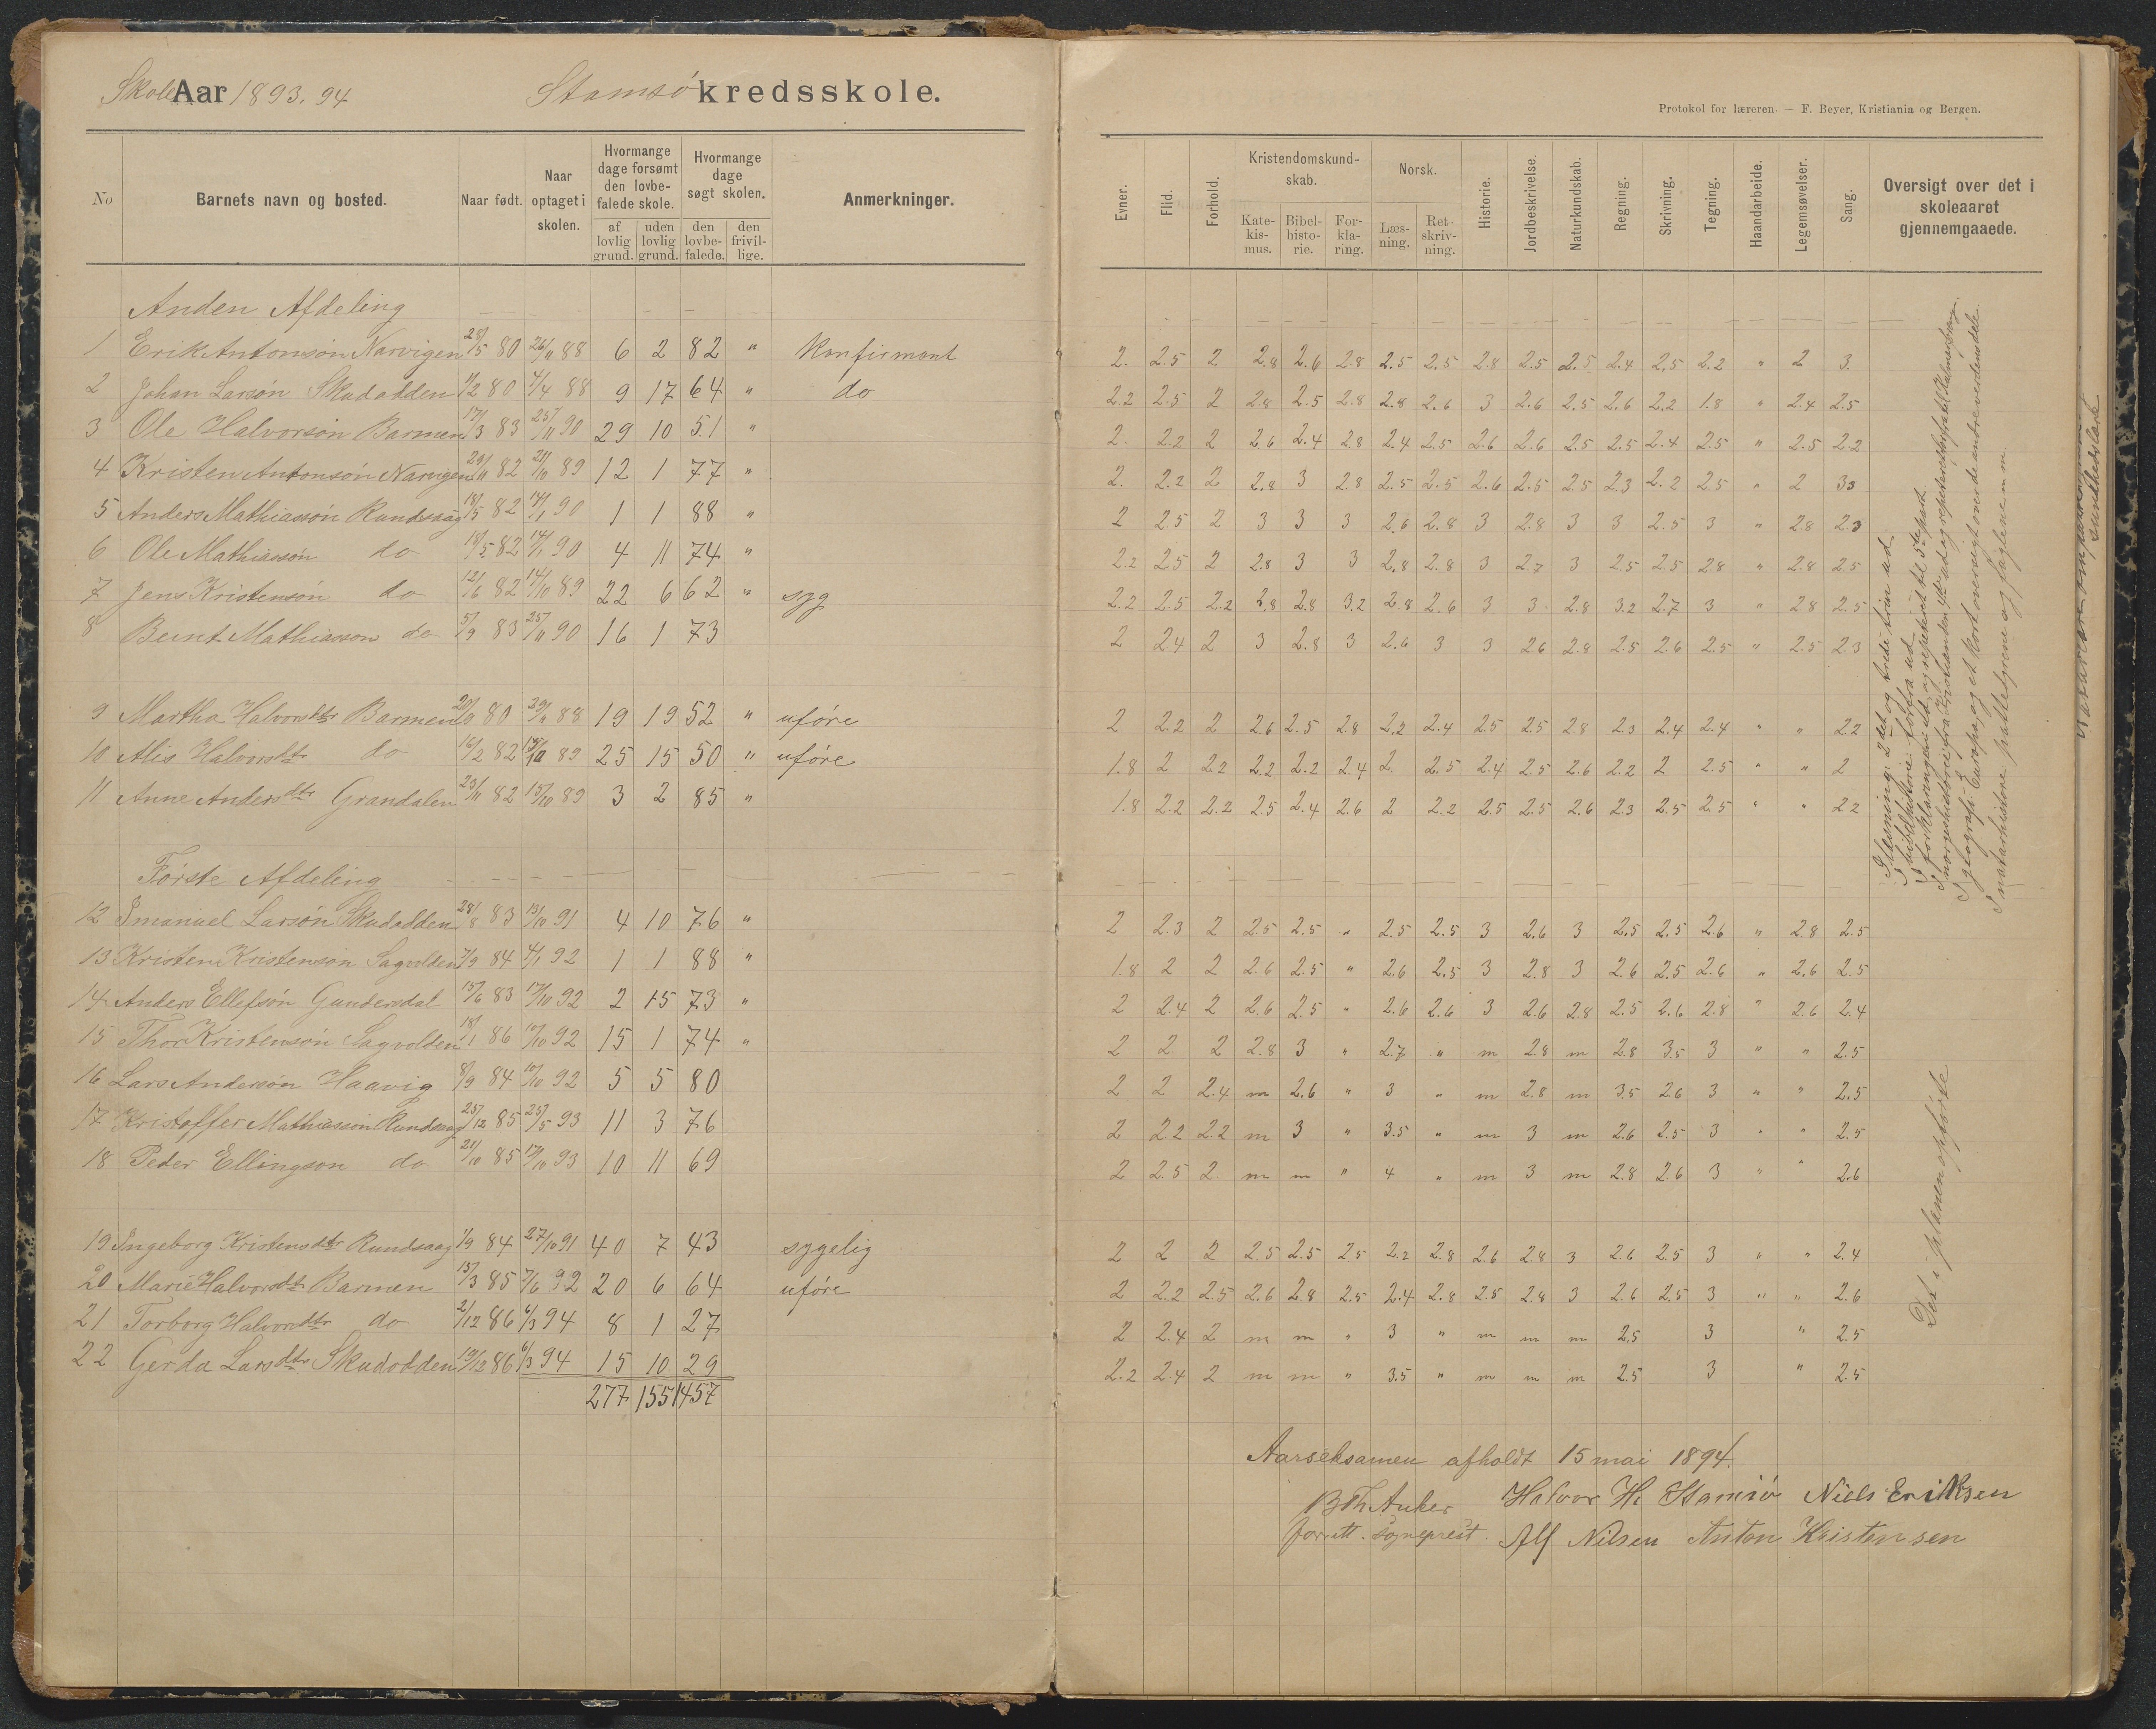 Skole Aar 1893.94 Stamsø kredsskole.
No Barnets navn og bosted. Naar født. Naar optaget i skolen. Hvormange dage forsømt den lovbefalede skole. af lovlig grund. uden lovlig grund. Hvormange dage søgt skolen. den lovbefalede. den frivillige. Anmerkninger.
Anden Afdeling
1 Erik Antonsøn Narvigen 28/5 80 26/11 88 6 2 82 " Konfirmant
2 Johan Larsøn Skudodden 1/2 80 4/4 88 9 17 64 " do
3 Ole Halvorsøn Barmen 17/3 83 25/11 90 29 10 51 "
4 Kristen Antonsøn Narvigen 29/11 82 21/10 89 12 1 77 "
5 Anders Mathiassøn Rundsaag 18/5 82 14/1 90 1 1 88 "
6 Ole Mathiassøn do 18/5 82 14/1 90 4 11 74 "
7 Jens Kristensøn do 12/6 82 14/10 89 22 6 62 " syg
8 Bernt Mathiasson do 5/9 83 25/11 90 16 1 73
9 Martha Halvorsdtr Barmen 20/9 80 30/11 88 19 19 52 " uføre
10 Alis Halvorsdtr do 16/2 82 15/10 89 25 15 50 " uføre
11 Anne Andersdtr Grøndalen 23/11 82 15/10 89 3 2 85 "
Første Afdeling
12 Imanuel Larsøn Skudodden 28/8 83 13/10 91 4 10 76 "
13 Kristen Kristensøn Sagvolden 7/9 84 4/1 92 1 1 88 "
14 Anders Ellefsøn Gundersdal 15/6 83 17/10 92 2 15 73 "
15 Thor Kristensøn Sagvolden 18/1 86 17/10 92 15 1 74 "
16 Lars Andersøn Haavig 8/9 84 17/10 92 5 5 80
17 Kristoffer Mathiassøn Rundsaag 25/12 85 25/5 93 11 3 76
18 Peder Ellingson do 21/10 85 17/10 93 10 11 69
19 Ingeborg Kristensdtr Rundsaag 1/9 84 27/10 91 40 7 43 sygelig
20 Marie Halvorsdtr Barmen 15/3 85 7/6 92 20 6 64 uføre
21 Torborg Halvorsdtr do 2/12 86 6/3 94 8 1 27
22 Gerda Larsdtr Skudodden 19/12 86 6/3 94 15 10 29
277 155 1457
Protokol for læreren. — F. Beyer, Kristiania og Bergen.
Evner. Flid. Forhold. Kristendomskundskab. Katekismus. Bibelhistorie. Forklaring. Norsk. Læsning. Retskrivning. Historie. Jordbeskrivelse. Naturkundskab. Regning. Skrivning. Tegning. Haandarbeide. Legemsøvelser. Sang. Oversigt over det i skoleaaret gjennemgaaede.
2. 2.5 2 2.8 2.6 2.8 2.5 2.5 2.8 2.5 2.5 2.4 2.5 2.2 " 2 3.
2.2 2.5 2 2.8 2.5 2.8 2.8 2.6 3 2.6 2.5 2.6 2.2 1.8 " 2.4 2.5
2. 2.2 2 2.6 2.4 2.8 2.4 2.5 2.6 2.6 2.5 2.5 2.4 2.5 " 2.5 2.2
2. 2.2 2 2.8 3 2.8 2.5 2.5 2.6 2.5 2.5 2.3 2.2 2.5 " 2 33
2 2.5 2 3 3 3 2.6 2.8 3 2.8 3 3 2.5 3 " 2.8 2.3
2.2 2.5 2 2.8 3 3 2.8 2.8 3 2.7 3 2.5 2.5 2.8 " 2.8 2.5
2.2 2.5 2.2 2.8 2.8 3.2 2.8 2.6 3 3 2.8 3.2 2.7 3 " 2.8 2.5
2 2.4 2 3 2.8 3 2.6 3 3 2.6 2.8 2.5 2.6 2.5 " 2.5 2.3
2 2.2 2 2.6 2.5 2.8 2.2 2.4 2.5 2.5 2.8 2.3 2.4 2.4 " " 2.2
1.8 2 2.2 2.2 2.2 2.4 2. 2.5 2.4 2.5 2.6 2.2 2 2.5 " " 2
1.8 2.2 2.2 2.5 2.4 2.6 2 2.2 2.5 2.5 2.6 2.3 2.5 2.5 " " 2.2
2 2.3 2 2.5 2.5 " 2.5 2.5 3 2.6 3 2.5 2.5 2.6 " 2.8 2.5
1.8 2 2 2.6 2.5 " 2.6 2.5 3 2.8 3 2.6 2.5 2.6 " 2.6 2.5
2 2.4 2 2.6 2.5 " 2.6 2.6 3 2.6 2.8 2.5 2.6 2.8 " 2.6 2.4
2 2 2 2.8 3 " 2.7 " m 2.8 m 2.8 3.5 3 " " 2.5
2 2 2.4 m 2.6 " 3 " m 2.8 m 3.5 2.6 3 " " 2.5
2 2.2 2.2 m 3 " 3.5 " m 3 m 2.6 2.5 3 " " 2.5
2 2.5 2. m m " 4 " m 3 m 2.8 2.6 3 " " 2.6
2 2 2 2.5 2.5 2.5 2.2 2.8 2.6 2.8 3 2.6 2.5 3 " " 2.4
2 2.2 2.5 2.6 2.8 2.5 2.4 2.8 2.5 2.8 3 2.6 2.5 3 " " 2.6
2 2.4 2 m m " 3 " m m m 2.5 3 " 2.5
2.2 2.4 2 m m " 3.5 " m m m 2.5 3 " 2.5
I læsning: 2det og tredie trin ud
I bibelhistorie: forfra ud
I forklaringen ud og repeteret til 5te part.
I geografi: Europa, og et kort oversigt over de andre verdensdele.
I naturhistorie: pattedyrene og fuglene m. m.
Det i planen opførte
Aarseksamen afholdt 15 mai 1894.
B Th Anker Halvor H. Stamsø Niels Eriksen
forrett. sogneprest. Alf Nilsen Anton Kristensen